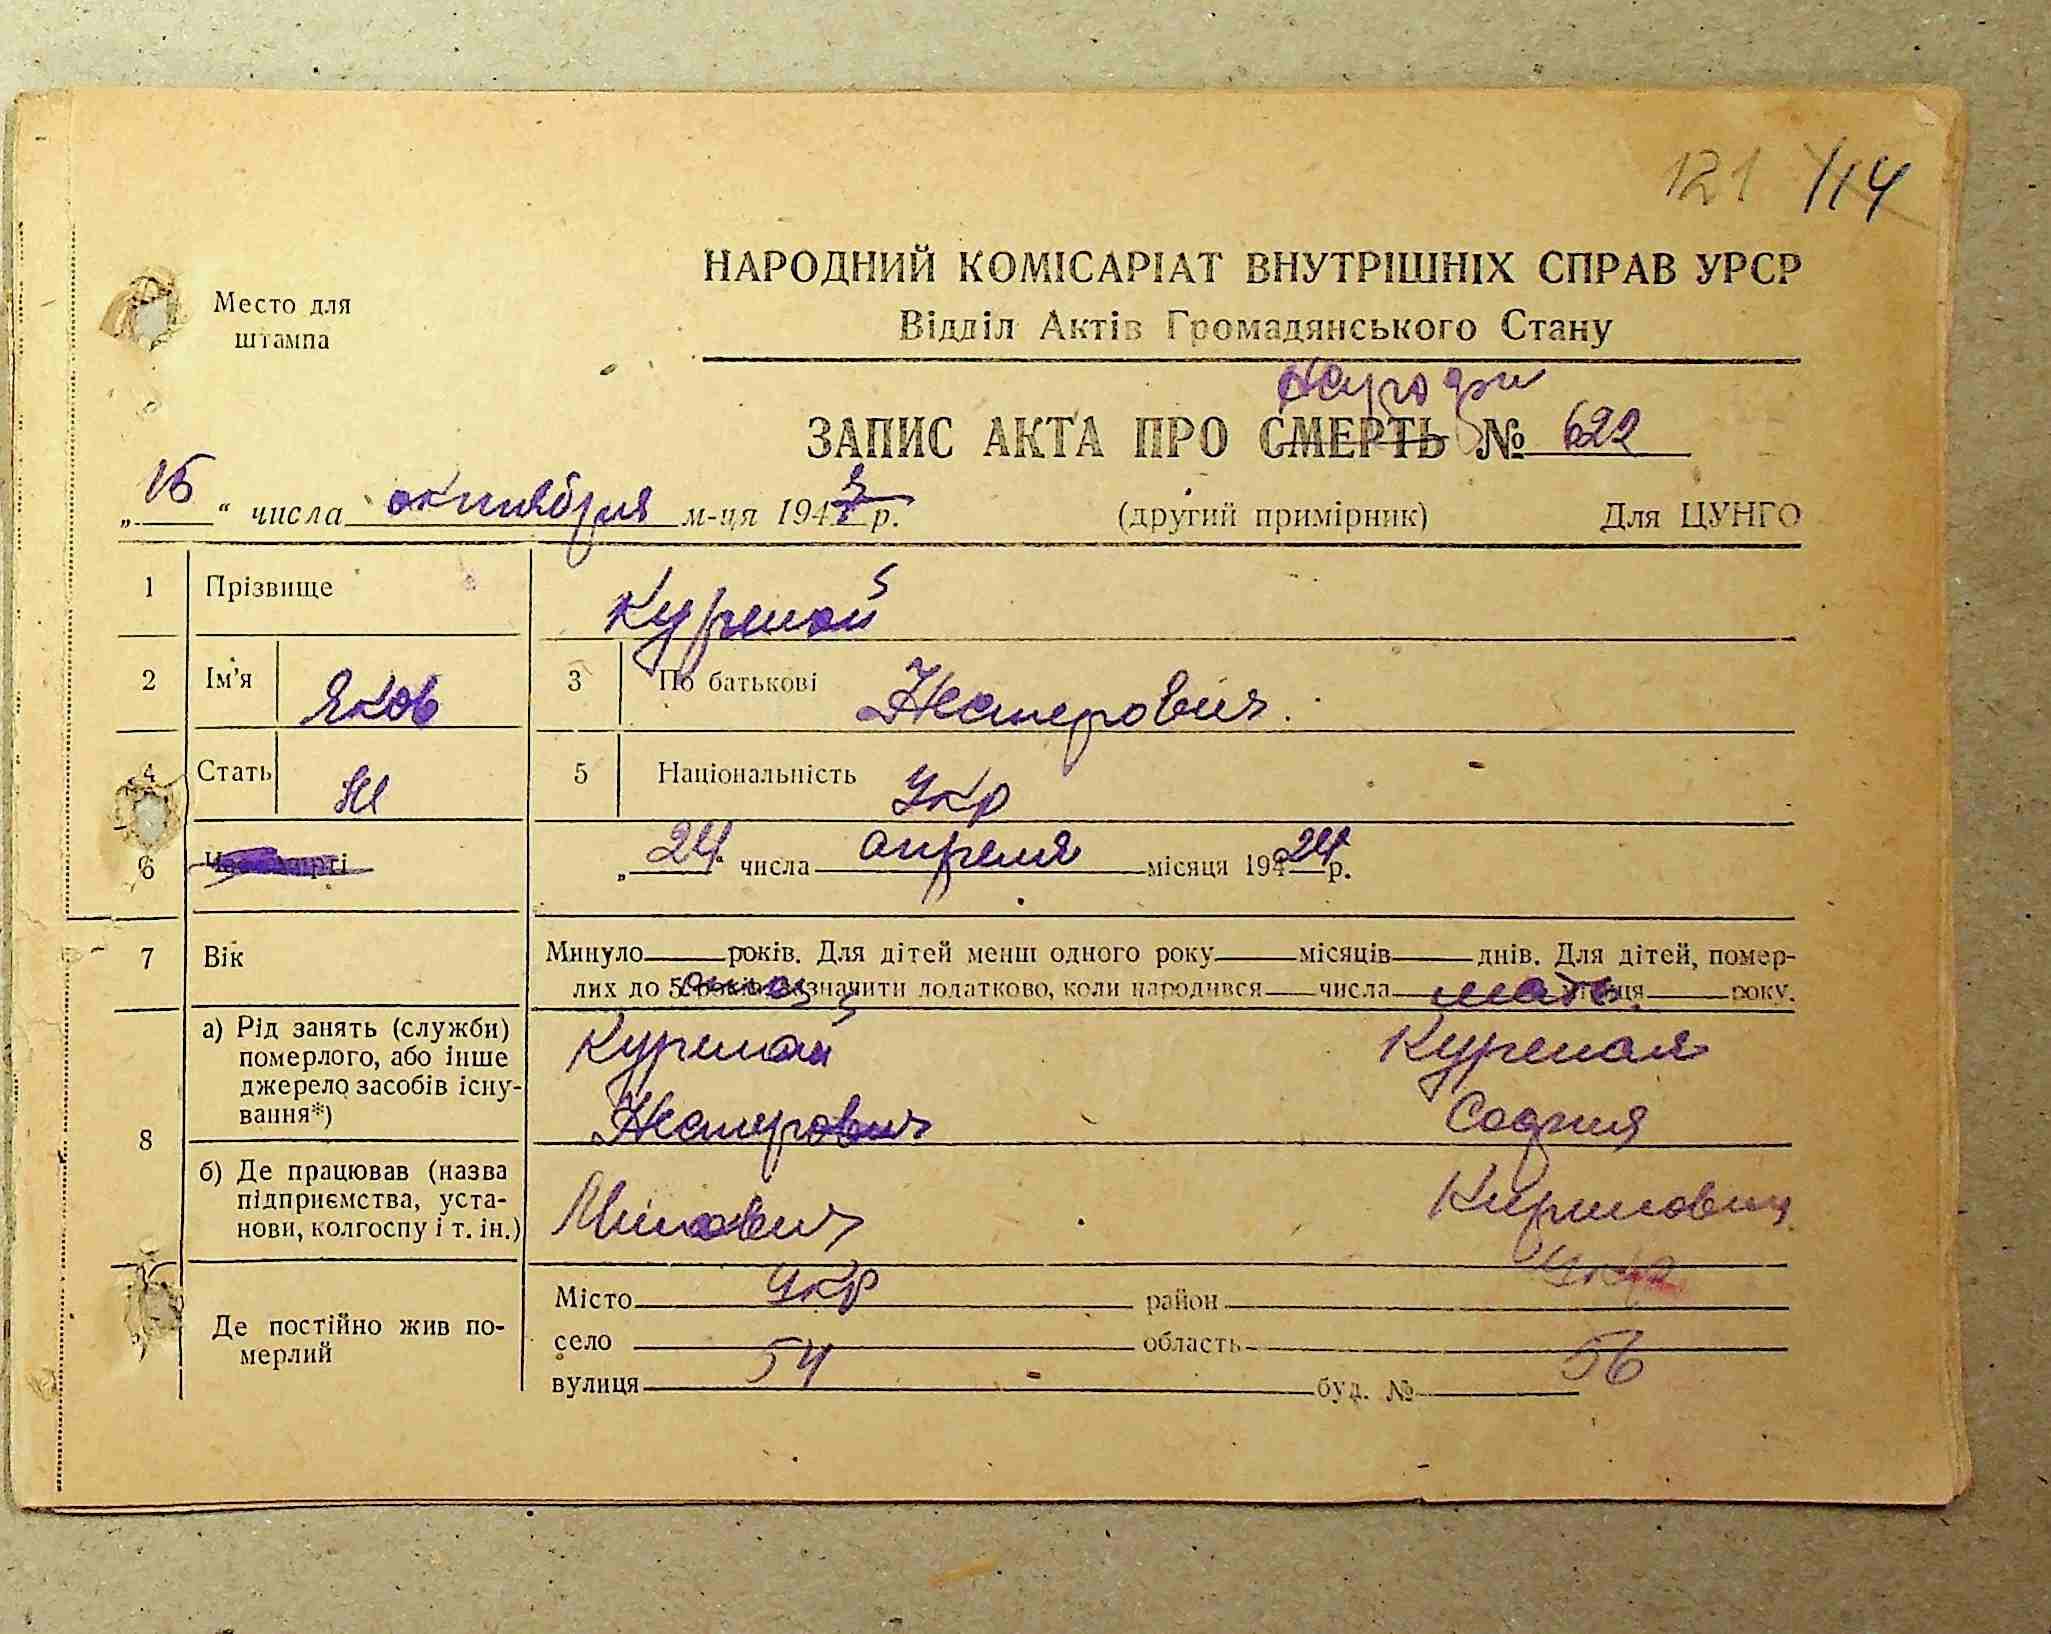 121 114
Место для
штампа
НАРОДНИЙ КОМІСАРІАТ ВНУТРІШНІХ СПРАВ УРСР
Відділ Актів Громадянського Стану
ЗАПИС АКТА ПРО СМЕРТЬ № 622
„ 16 “ числа октября м-ця 194 р. (другий примірник) Для ЦУНГО
1 Прізвище Курепой
2 Ім'я Яков 3 По батькові Нестерович
4 Стать М 5 Національність Укр
6 „ 24 “ числа апреля місяця 194 24 р.
7 Вік Минуло років. Для дітей менш одного року місяців днів. Для дітей, помер-
лих до 5 років зазначити додатково, коли народився числа мать місяця року.
8 а) Рід занять (служби)
померлого, або інше
джерело засобів існу-
вання*)
Курепой Курепая
Нестерович София
б) Де працював (назва
підприємства, уста-
нови, колгоспу і т. ін.)
Кириловна
Де постійно жив по-
мерлий
Місто Укр район Укр
село область
вулиця 54 буд. № 56